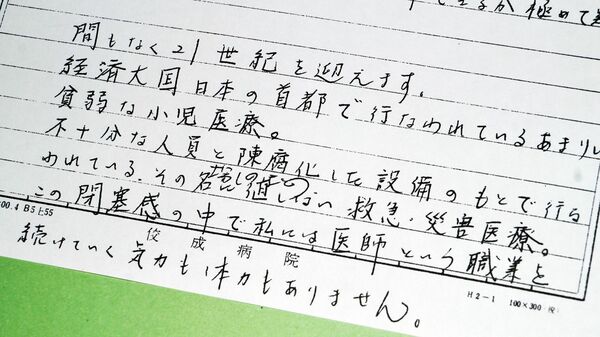 るか極めて
間もなく21世紀を迎えます。
経済大国日本の首都で行なわれているあまりに
貧弱な小児医療。
不十分な人員と陳腐化した設備のもとで行な
われている、その名に値しない救急・災害医療。
この閉塞感の中で私には医師という職業を
00.4 B5上55
佼成病院
H2-1 100×300
続けていく気力も体力もありません。